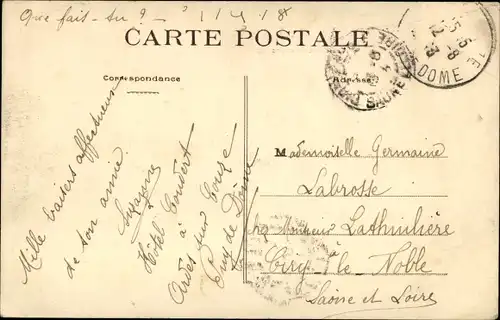 Que fais-tu ? -
CARTE POSTALE
Correspondance
Adresse
DOME
SAONE
Mille baisers affectueux
de ton amie.
Suzanne
Hôtel Coudert
à
Ardes sur Couze
Puy de Dôme
Mademoiselle Germaine
Labrosse
chez Monsieur Lathuilière
Ciry-le-Noble
Saône et Loire